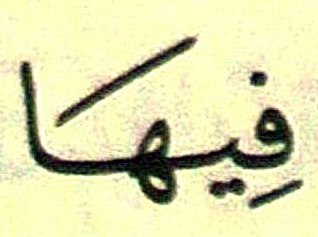 فِيهَا